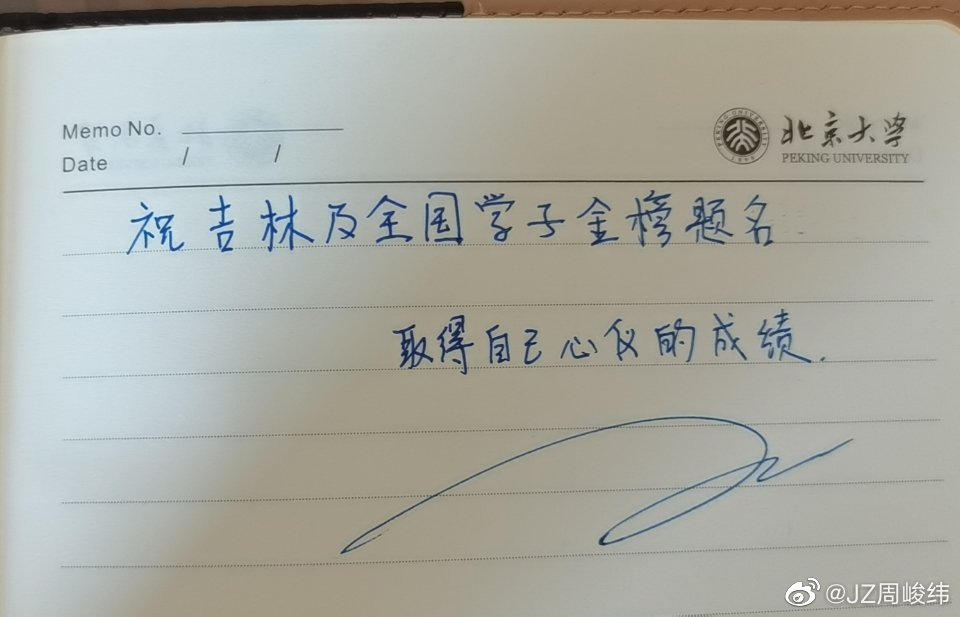 Memo No.
Date / /
北京大学
PEKING UNIVERSITY
PEKING UNIVERSITY
1898
祝吉林及全国学子金榜题名
取得自己心仪的成绩.
@JZ周峻纬